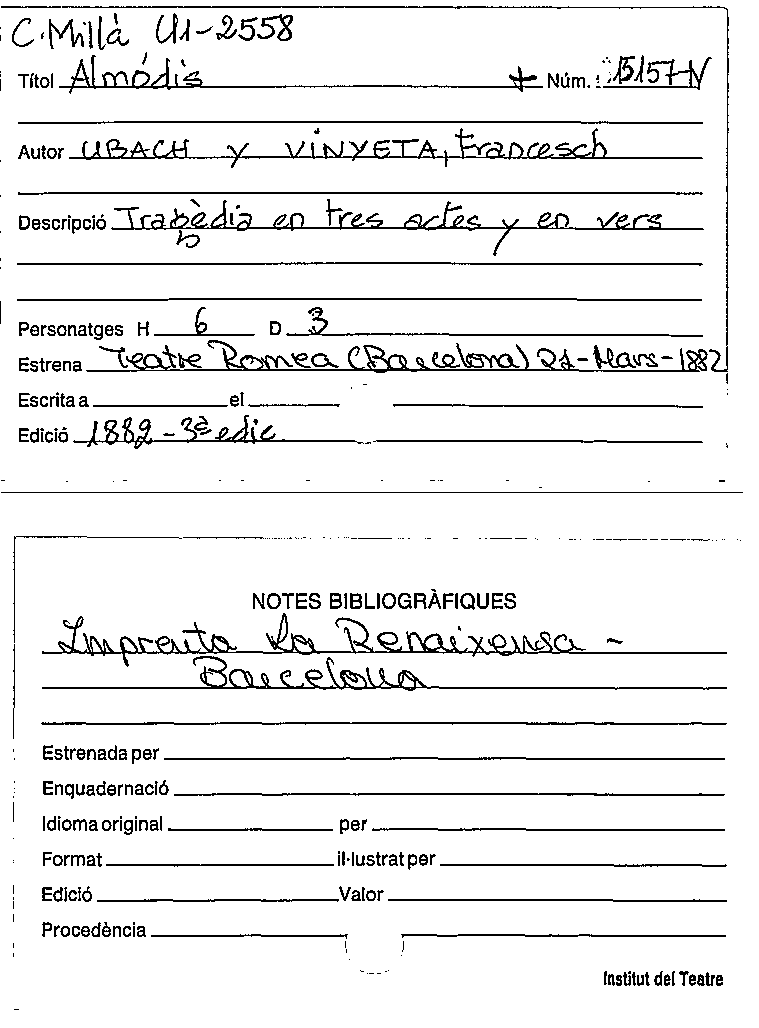 C. Millà U1-2558
Títol Almódis + Núm. 15157-N
Autor UBACH y VINYETA, Francesch
Descripció Tragèdia en tres actes y en vers
Personatges H 6 D 3
Estrena Teatre Romea (Barcelona) 21-Mars-1882
Escrita a el
Edició 1882 - 3ª edic.
NOTES BIBLIOGRÀFIQUES
Imprenta La Renaixensa -
Barcelona
Estrenada per
Enquadernació
Idioma original per
Format il·lustrat per
Edició Valor
Procedència
Institut del Teatre